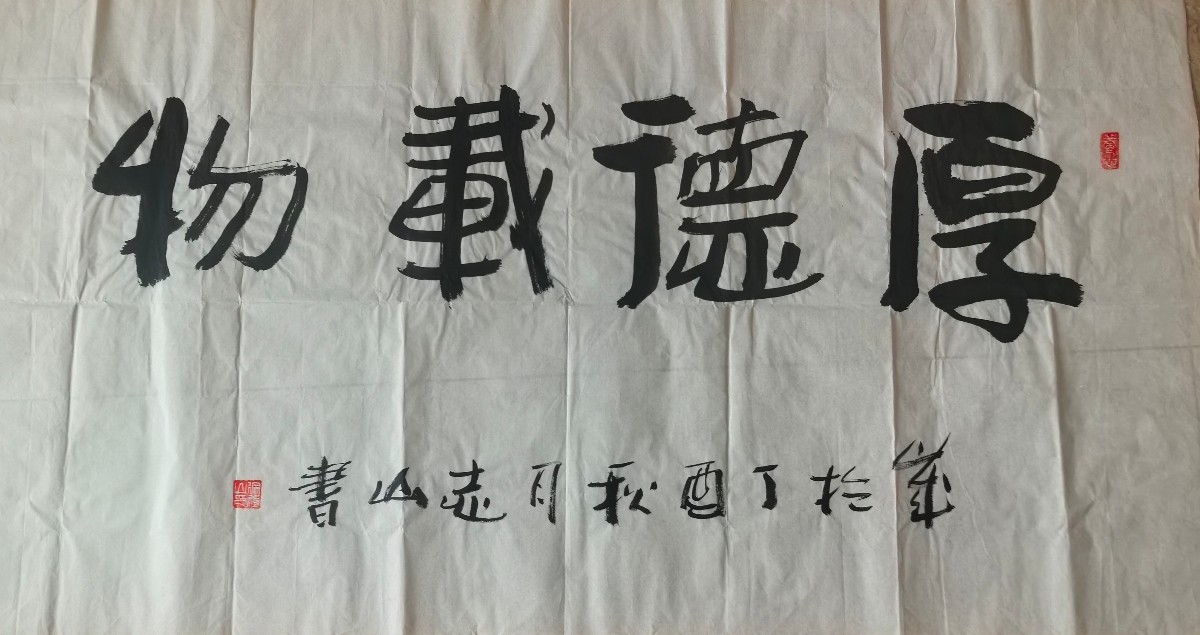 厚德载物
岁於丁酉秋月志山書